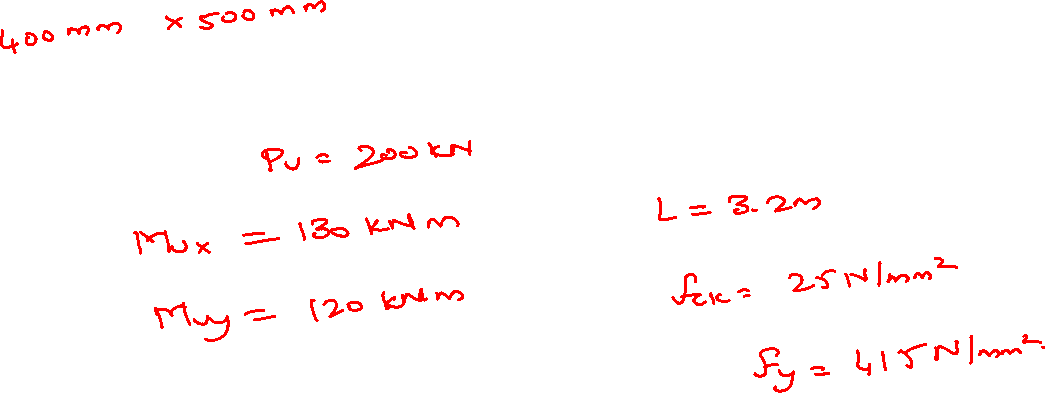 400 mm × 500 mm
Pu = 200 kN
Mux = 130 kNm
Muy = 120 kNm
L = 3.2m
fck = 25 N/mm²
fy = 415 N/mm².